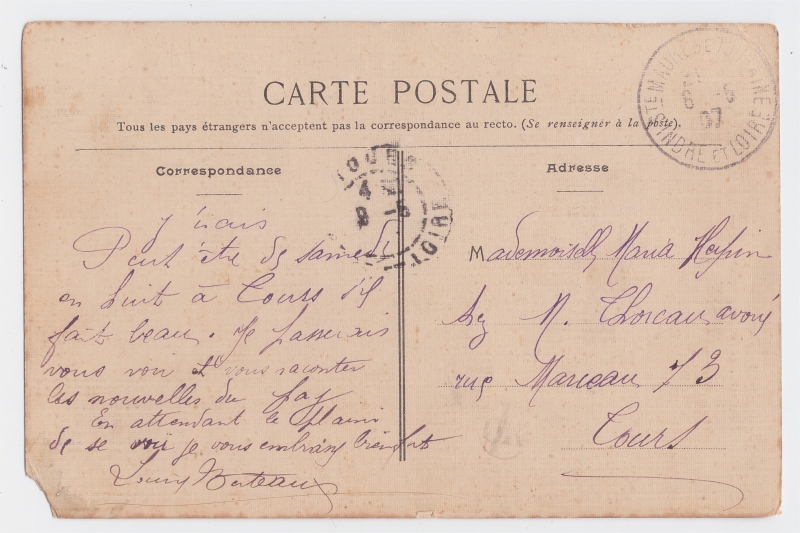 CARTE POSTALE
Tous les pays étrangers n'acceptent pas la correspondance au recto. (Se renseigner à la poste).
Correspondance
j'irais
Peut être de samedi
en huit à Tours s'il
fait beau. Je passerais
vous voir et vous raconter
les nouvelles du pay
En attendant le plaisir
de se voir je vous embrasse bien fort
Louis
Adresse
Mademoiselle Maria
chez M. avoué
rue Marceau 73
Tours
STE MAURE DE TOURAINE
8 -5
07
INDRE ET LOIRE
TOURS
8 -5
LOIRE